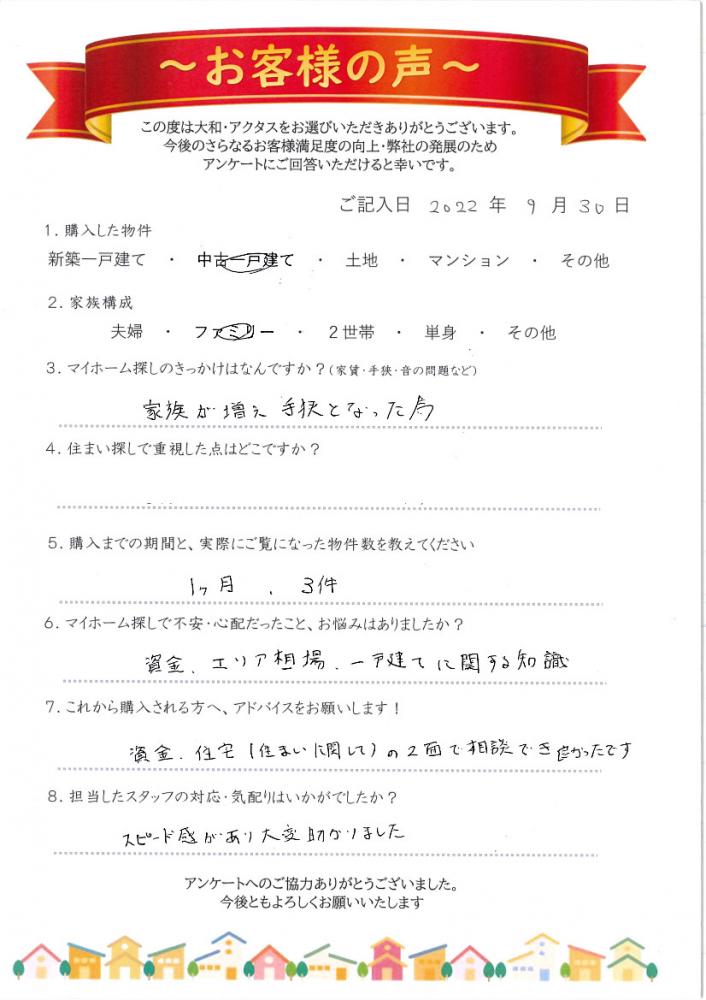 ～お客様の声～
この度は大和・アクタスをお選びいただきありがとうございます。
今後のさらなるお客様満足度の向上・弊社の発展のため
アンケートにご回答いただけると幸いです。
ご記入日 2022 年 9 月 30 日
1. 購入した物件
新築一戸建て ・ 中古一戸建て ・ 土地 ・ マンション ・ その他
2. 家族構成
夫婦 ・ ファミリー ・ 2世帯 ・ 単身 ・ その他
3. マイホーム探しのきっかけはなんですか？(家賃・手狭・音の問題など)
家族が増え 手狭となった為
4. 住まい探しで重視した点はどこですか？
5. 購入までの期間と、実際にご覧になった物件数を教えてください
1ヶ月 、 3件
6. マイホーム探しで不安・心配だったこと、お悩みはありましたか？
資金、エリア相場、一戸建てに関する知識
7. これから購入される方へ、アドバイスをお願いします！
資金、住宅(住まいに関して)の2面で相談でき良かったです
8. 担当したスタッフの対応・気配りはいかがでしたか？
スピード感があり大変助かりました
アンケートへのご協力ありがとうございました。
今後ともよろしくお願いいたします